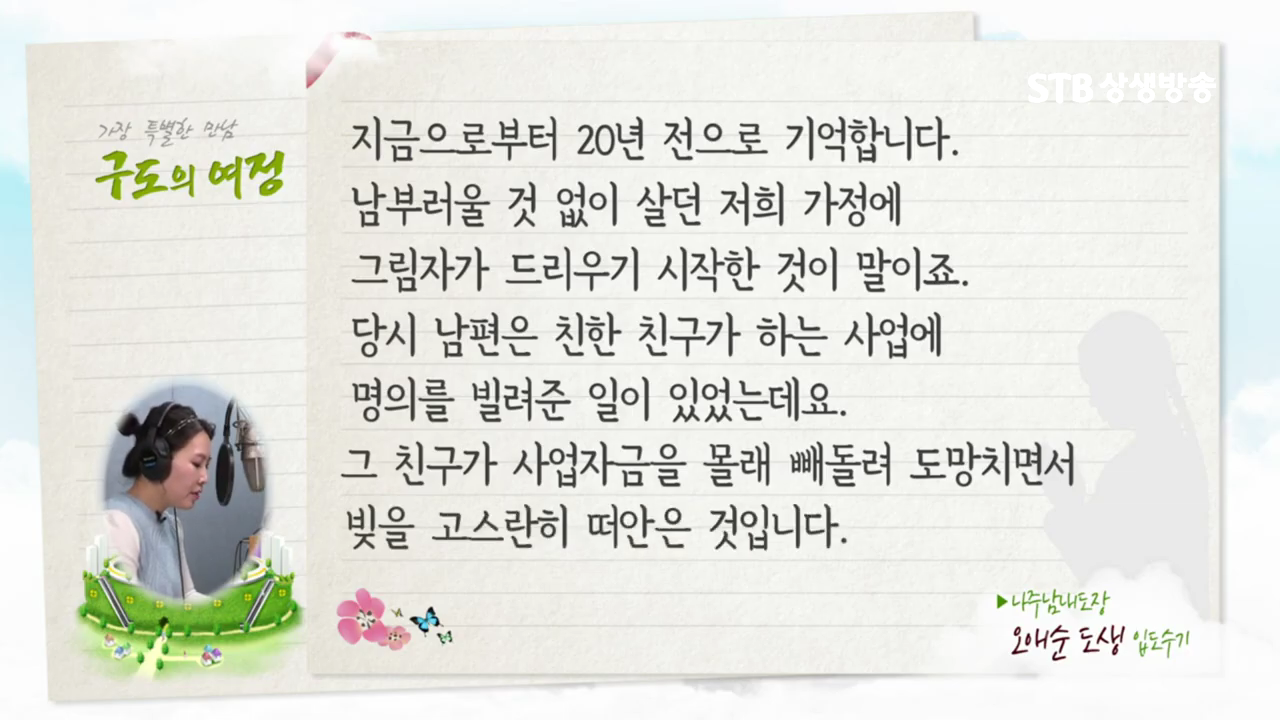 STB 상생방송
가장 특별한 만남
구도의 여정
지금으로부터 20년 전으로 기억합니다.
남부러울 것 없이 살던 저희 가정에
그림자가 드리우기 시작한 것이 말이죠.
당시 남편은 친한 친구가 하는 사업에
명의를 빌려준 일이 있었는데요.
그 친구가 사업자금을 몰래 빼돌려 도망치면서
빚을 고스란히 떠안은 것입니다.
▶나주남내도장
오애순 도생 입도수기